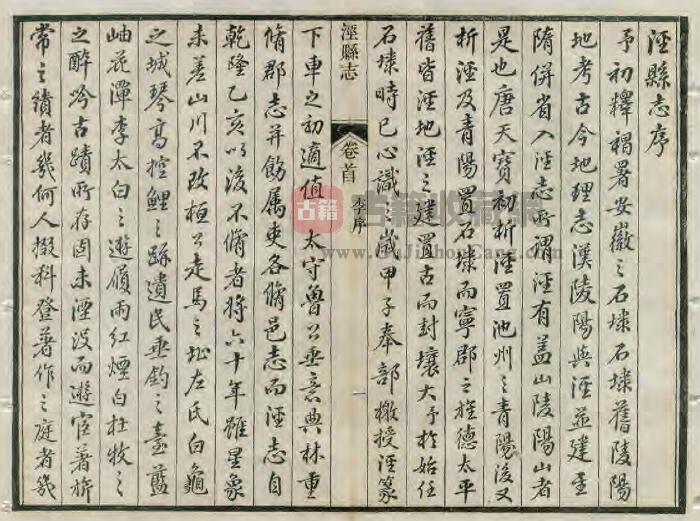 涇縣志序
予初釋褐署安徽之石埭石埭舊陵陽
地考古今地理志漢陵陽與涇並建至
隋併省入涇志所謂涇有蓋山陵陽山者
是也唐天寶初析涇置池州之青陽後又
析涇及青陽置石埭而寧郡之旌德太平
舊皆涇地涇之建置古而封壤大予於始任
石埭時已心識之歲甲子奉部檄授涇篆
涇縣志
卷首
李序
一
下車之初適值 太守魯公垂意典林重
脩郡志并飭屬吏各脩邑志而涇志自
乾隆乙亥以後不脩者將六十年雖星象
未差山川不改桓公走馬之址左氏白龜
之城琴高控鯉之跡遺民垂釣之臺藍
岫花潭李太白之遊屐雨紅煙白杜牧之
之醉吟古蹟所存固未湮沒而遊宦著旂
常之蹟者幾何人掇科登著作之庭者幾
古籍
古籍收藏網
GuJiShouCang.Com